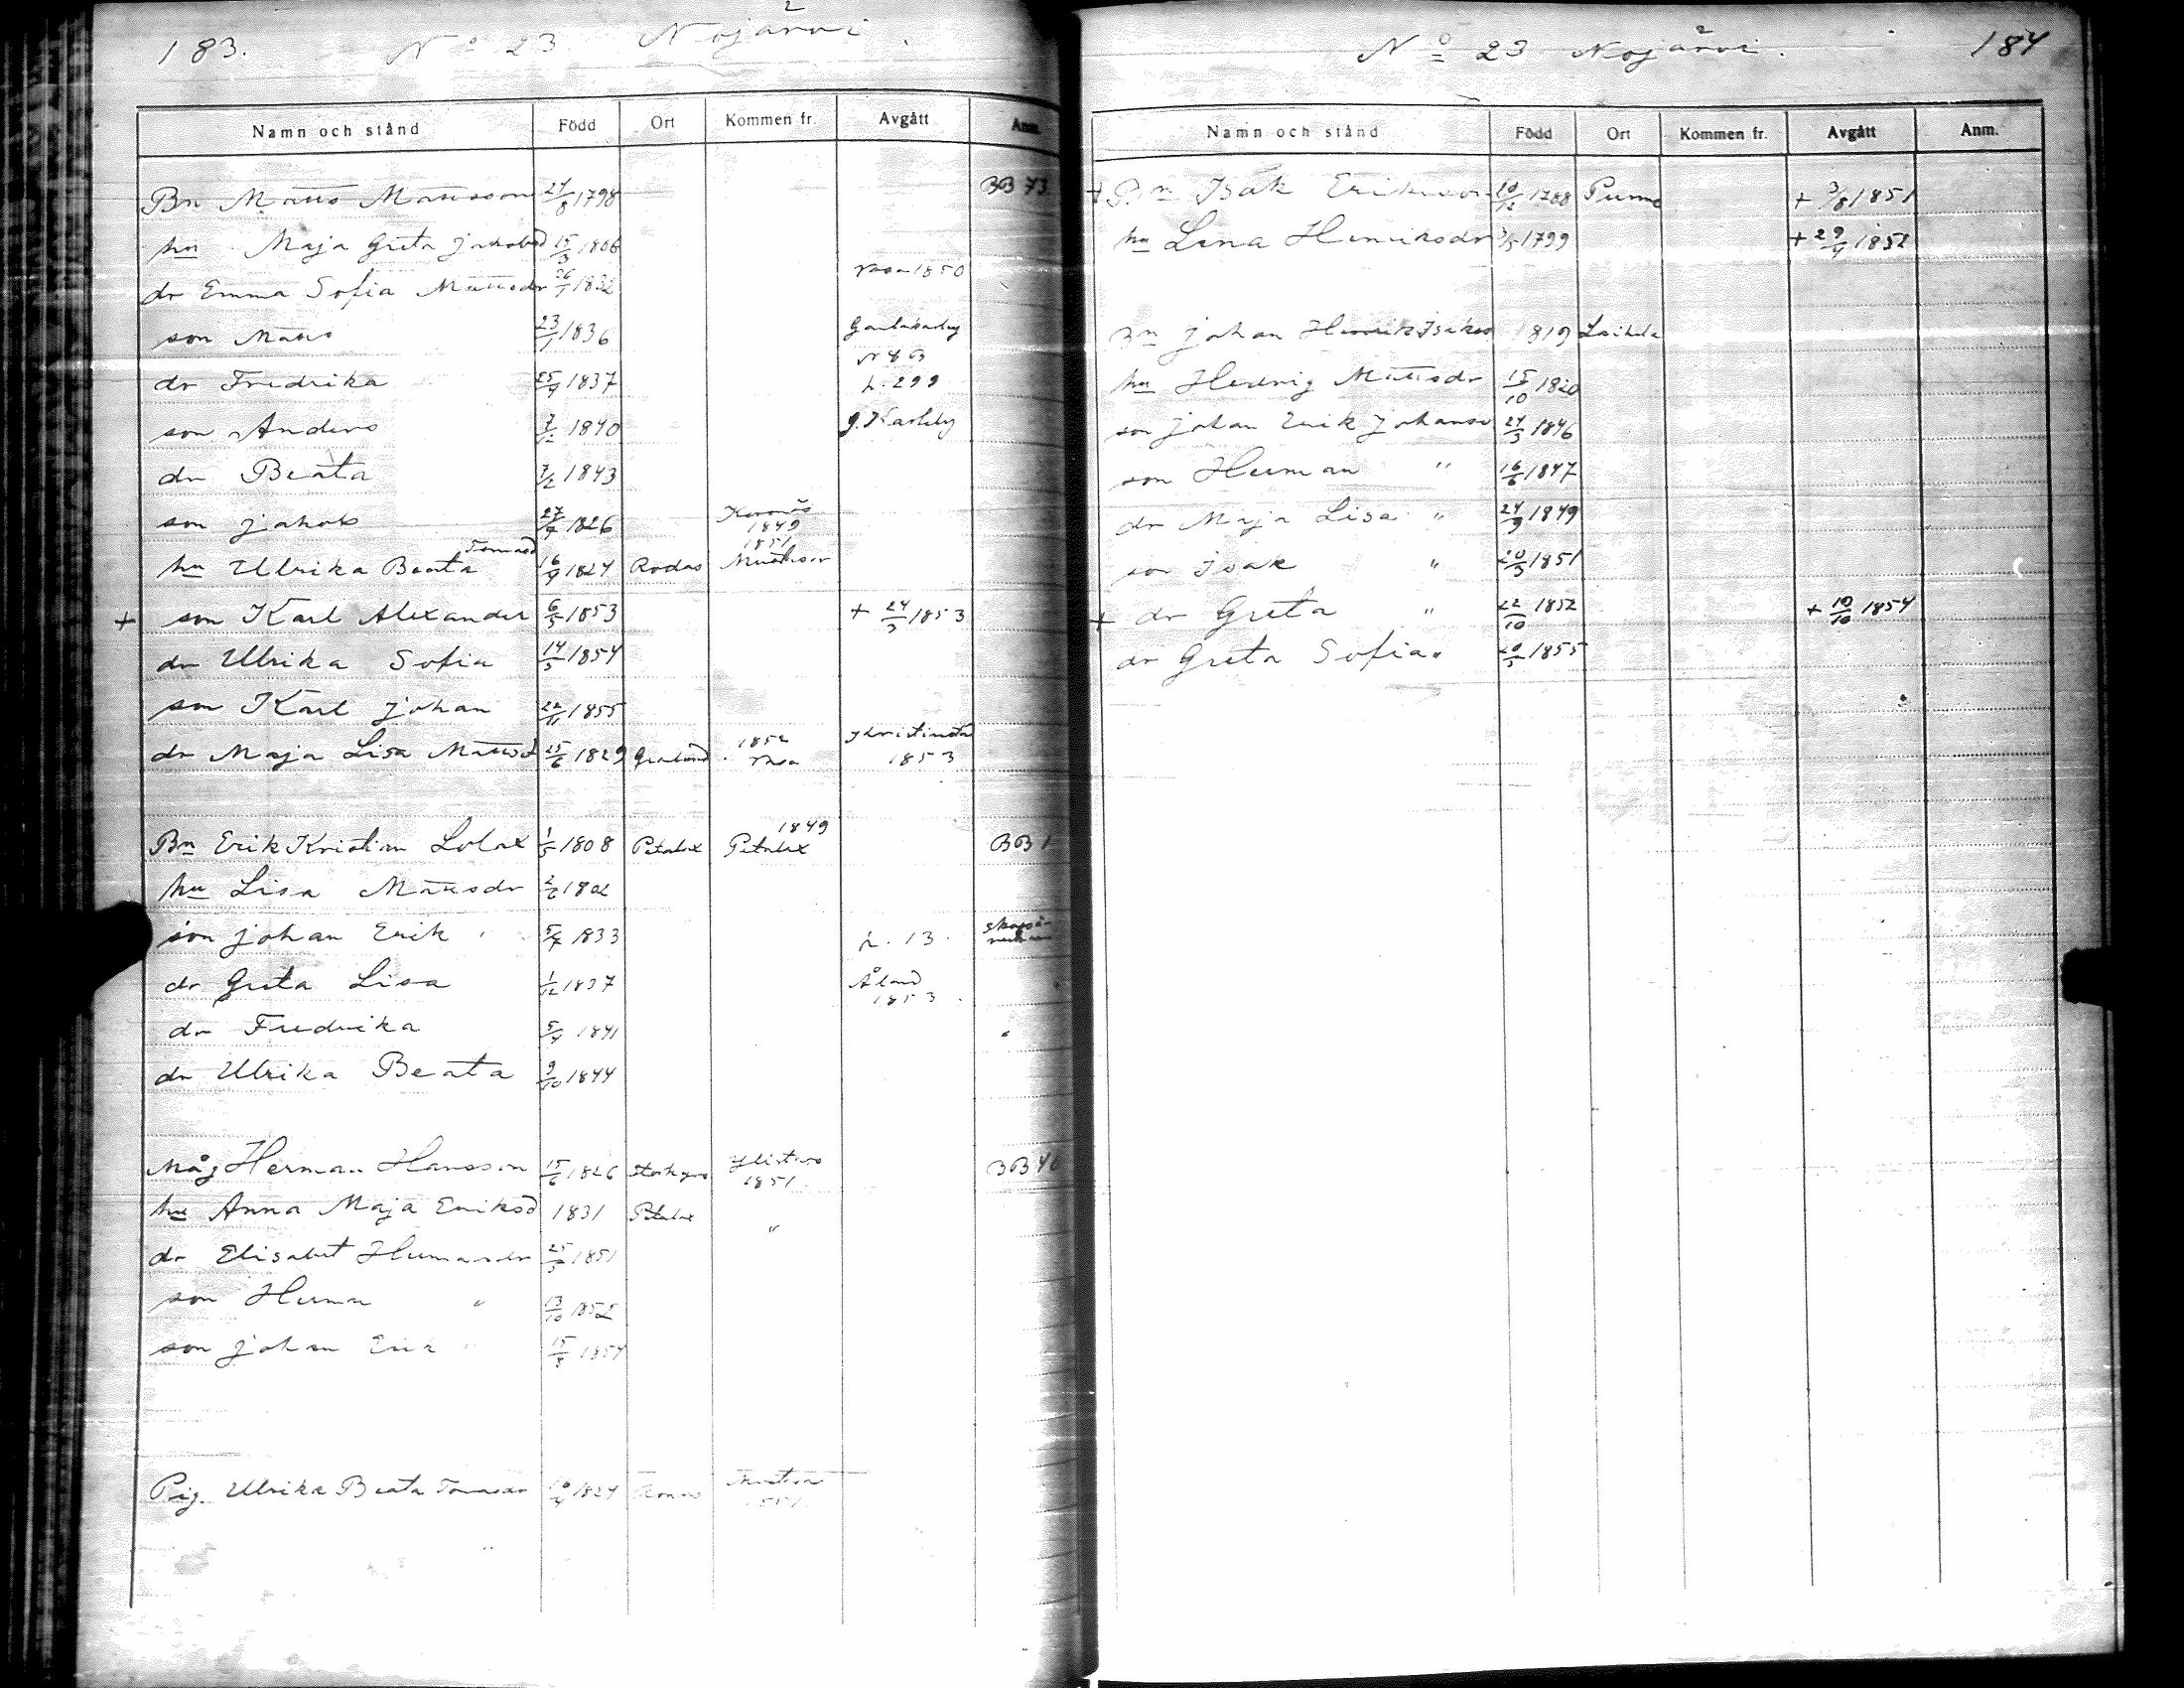 183. No 23 Nojärvi
Namn och stånd Född Ort Kommen fr. Avgått Anm.
Bn Matts Mattsson 24/8 1798 BB 73.
hu Maja Greta Jakobsd 15/3 1806
dr Emma Sofia Mattsdr 26/1 1832 1850
son Matts 23/1 1836 Gamlakarleby
N 83
dr Fredrika 25/9 1837 L. 299
son Anders 7/12 1840 g. Karleby
dr Beata 7/2 1843
son Jakob 27/7 1826 Korsnäs 1849
1851
hu Ulrika Beata Tomasd 16/4 1824 Mustasar
+ son Karl Alexander 6/3 1853 + 24/3 1853
dr Ulrika Sofia 14/5 1854
son Karl Johan 22/11 1855
dr Maja Lisa Mattsd 25/6 1829 1852 Kristinesta 1853
Bn Erik Kristian Lolax 1/5 1808 Petalax 1849 Petalax BB 1
hu Lisa Mattsdr 2/6 1802
son Johan Erik 5/7 1833 L. 13.
dr Greta Lisa 1/12 1837 Åland 1853.
dr Fredrika 5/4 1841
dr Ulrika Beata 9/10 1844
Måg Herman Hansson 15/6 1826 Storkyro Ylistaro 1851. BB 46
hu Anna Maja Eriksd 1831 Petalax "
dr Elisabet Hermansdr 25/3 1851
son Herman " 13/10 1852
son Johan Erik " 15/8 1854
Pig. Ulrika Beata Tomasdr 1824
No 23 Nojärvi. 184
Namn och stånd Född Ort Kommen fr. Avgått Anm.
+ Bn Isak Eriksson 20/12 1788 + 3/8 1851
hu Lena Henriksdr 3/5 1799 + 29/4 1852
Bn Johan Henrik Isakss 1819 Laihela
hu Hedvig Mattsdr 15/10 1820
son Johan Erik Johanss 24/3 1846
son Herman " 16/6 1847
dr Maja Lisa " 24/9 1849
son Isak " 20/3 1851
+ dr Greta " 22/10 1852 + 10/10 1854
dr Greta Sofia " 20/5 1855